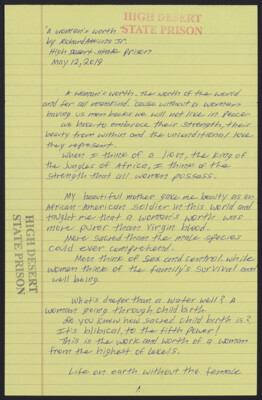 HIGH DESERT
STATE PRISON
"A woman's worth"
by Richard Jr.
High Desert State Prison
May 12, 2019
A woman's worth. The worth of the world
and for all mankind cause without a woman
having us men babies we will not live in peace.
We have to embrace their strength, their
beauty from within and the unconditional love
they represent.
When I think of a lion, the king of
the jungles of Africa, I think of the
strength that all women possess.
My beautiful mother gave me beauty as an
African-American soldier in this world and
taught me that a woman's worth was
more purer than virgin blood.
More sacred than the male species
could ever comprehend.
Men think of sex and control while
women think of the family's survival and
well being.
What's deeper than a water well? A
woman going through child birth.
Do you know how sacred child birth is?
It's biblical, to the fifth power!
This is the work and worth of a woman
from the highest of levels.
Life on earth without the female
1
HIGH DESERT
STATE PRISON